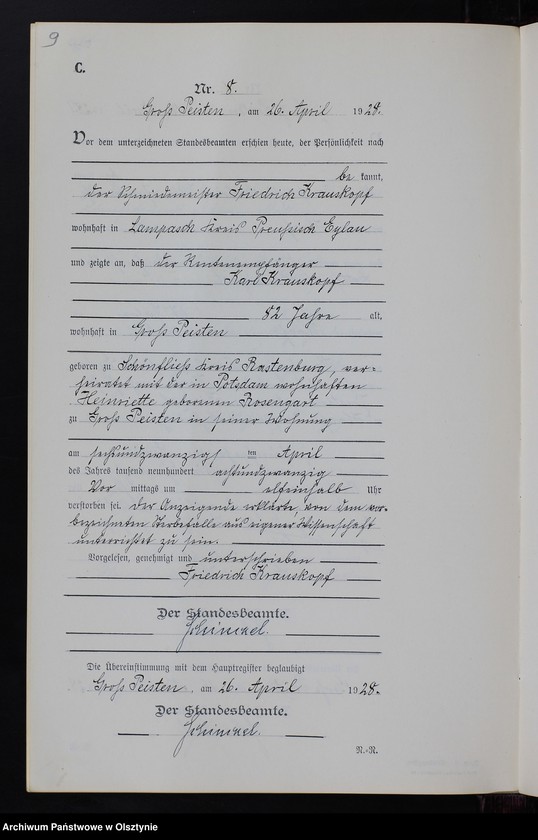 9
C.
Nr. 8.
Groß Peisten, am 26. April 1928.
Vor dem unterzeichneten Standesbeamten erschien heute, der Persönlichkeit nach
be kannt,
der Schmiedemeister Friedrich Krauskopf
wohnhaft in Lampasch Kreis Preußisch Eylau
und zeigte an, daß der Rentenempfänger
Karl Krauskopf
82 Jahre alt,
wohnhaft in Groß Peisten
geboren zu Schönfließ Kreis Rastenburg, ver-
heiratet mit der in Potsdam wohnhaften
Heinriette geborenen Rosengart
zu Groß Peisten in seiner Wohnung
am sechsundzwanzigs ten April
des Jahres tausend neunhundert achtundzwanzig
Vor mittags um elfeinhalb Uhr
verstorben sei. Der Anzeigende erklärte, von dem vor-
bezeichneten Sterbefalle aus eigener Wissenschaft
unterrichtet zu sein.
Vorgelesen, genehmigt und unterschrieben
Friedrich Krauskopf
Der Standesbeamte.
Die Übereinstimmung mit dem Hauptregister beglaubigt
Groß Peisten, am 26. April 1928.
Der Standesbeamte.
N.-R.
Archiwum Państwowe w Olsztynie